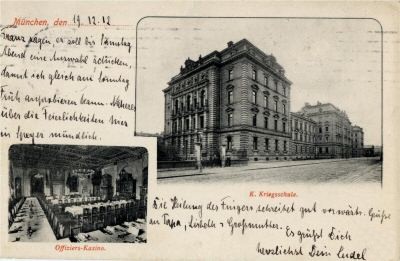 München, den 19.12.12
Franz sagen, er soll bis Samstag
Abend eine Auswahl schicken,
damit ich gleich am Sonntag
Früh anprobieren kann. Näheres
über die Feierlichkeiten hier
in Speyer mündlich.
K. Kriegsschule.
Offiziers-Kasino.
Die Heilung des Fingers schreitet gut vorwärts. Grüße
an Papa, u. Grossmutter. Es grüßt Dich
herzlichst Dein